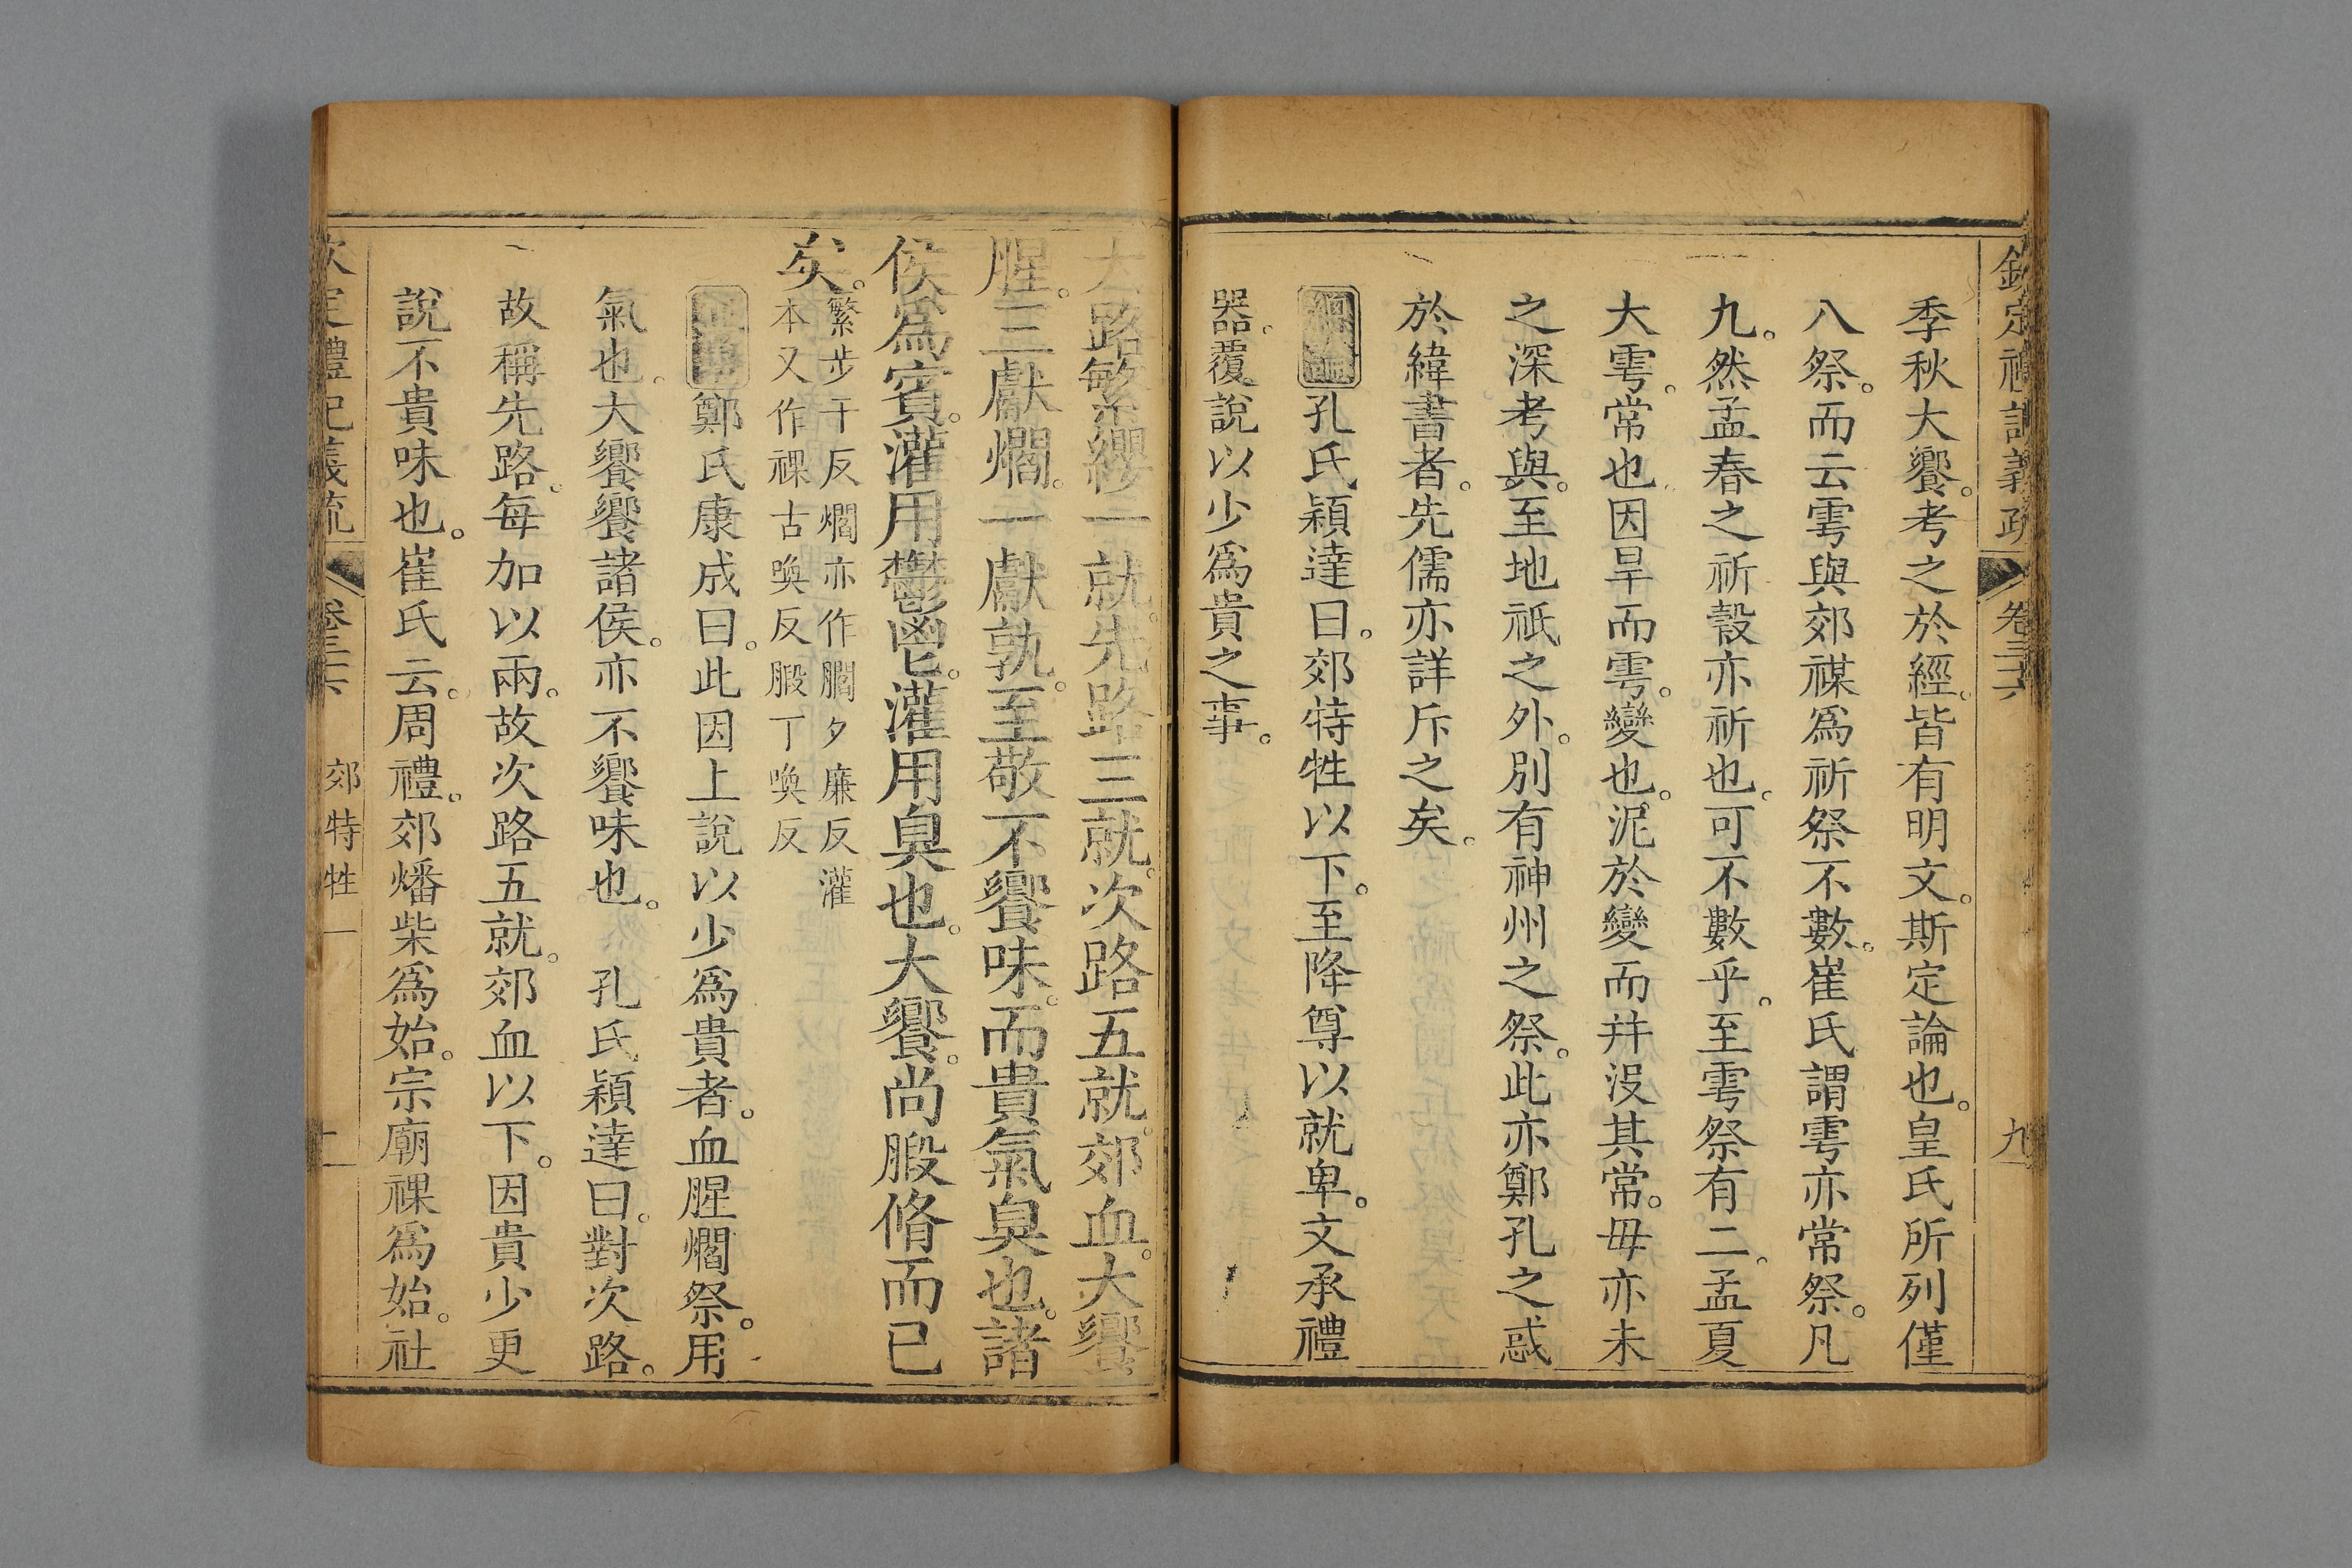 欽定禮記義疏 卷三六 九
季秋大饗。考之於經。皆有明文。斯定論也。皇氏所列僅
八祭。而云雩與郊禖爲祈祭不數。崔氏謂雩亦常祭。凡
九。然孟春之祈穀亦祈也。可不數乎。至雩祭有二。孟夏
大雩。常也因旱而雩。變也。泥於變而幷沒其常。毋亦未
之深考與。至地祇之外。別有神州之祭。此亦鄭孔之惑
於緯書者。先儒亦詳斥之矣。
孔氏穎達曰。郊特牲以下。至降尊以就卑。文承禮
器。覆說以少爲貴之事。
大路繁纓一就。先路三就。次路五就。郊血。大饗
腥。三獻爓。一獻孰。至敬不饗味。而貴氣臭也。諸
侯爲賓。灌用鬱鬯。灌用臭也。大饗。尚腶脩而已
矣。繁步干反爓亦作膶夕廉反灌
本又作祼古喚反腶丁喚反
鄭氏康成曰。此因上說以少爲貴者。血腥爓祭。用
氣也。大饗饗諸侯。亦不饗味也。 孔氏穎達曰。對次路。
故稱先路。每加以兩。故次路五就。郊血以下。因貴少更
說不貴味也。崔氏云。周禮。郊燔柴爲始。宗廟祼爲始。社
欽定禮記義疏 卷三六 郊特牲一